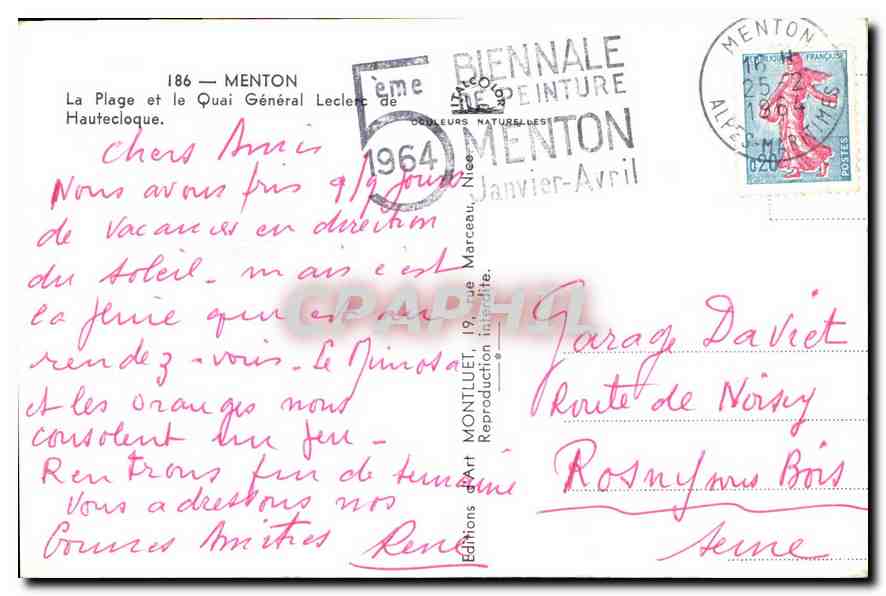 186 — MENTON
La Plage et le Quai Général Leclerc de
Hautecloque.
5ème
1964
BIENNALE
DE PEINTURE
MENTON
Janvier-Avril
ITALCOLOR
COULEURS NATURELLES
MENTON
16 H
25-2
1964
ALPES-MARITIMES
REPUBLIQUE FRANÇAISE
0,20
POSTES
Chers Amis
Nous avons pris 8/9 jours
de vacances en direction
du soleil - mais c'est
la pluie qui est au
rendez-vous. Le Mimosa
et les oranges nous
consolent un peu -
Rentrons fin de semaine
Vous adressons nos
Bonnes Amitiés René
Editions d'Art MONTLUET, 19, rue Marceau, Nice
Reproduction interdite.
Garage Daviet
Route de Noisy
Rosny sous Bois
Seine
CPAPHIL